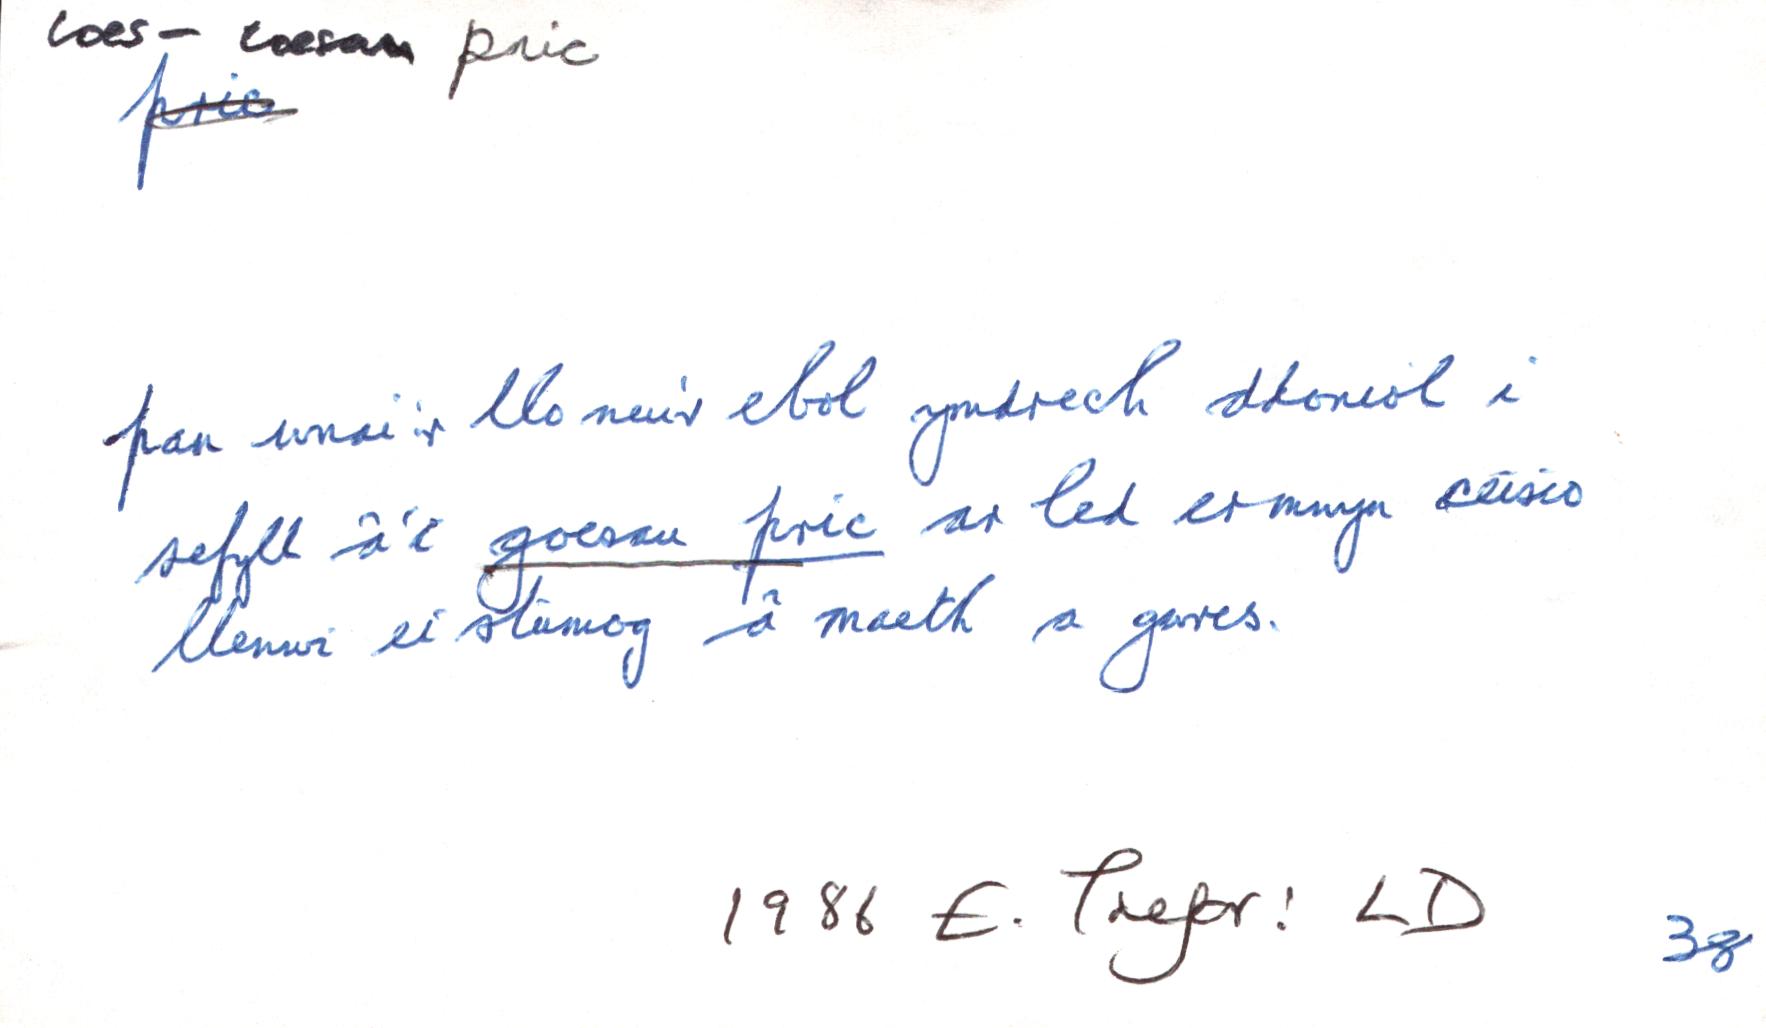 coes – coesau pric
pric
pan wnai'r llo neu'r ebol ymdrech ddoniol i
sefyll â'i goesau pric ar led er mwyn ceisio
llenwi ei stumog â maeth a gwres.
1986 E. Trefor: LD
38